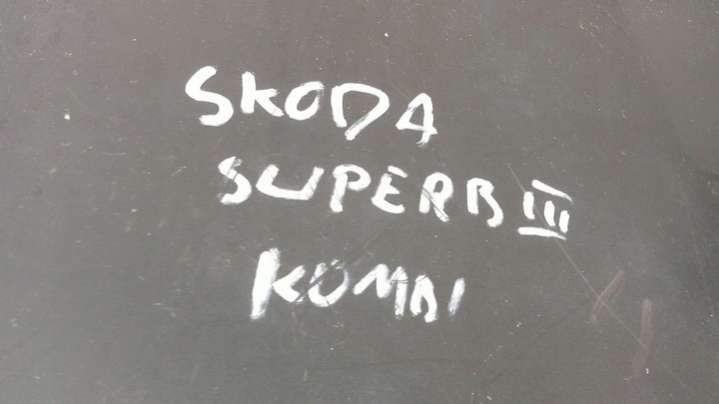 SKODA
SUPERB III
KOMBI